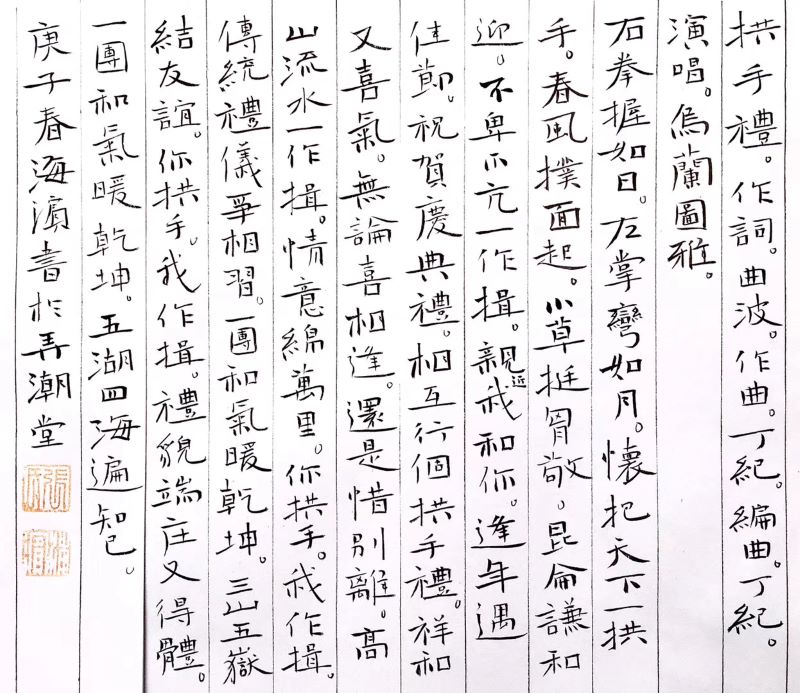 拱手禮。作詞。曲波。作曲。丁紀。編曲。丁紀。
演唱。烏蘭圖雅。
右拳握如日。左掌彎如月。懷抱天下一拱
手。春風撲面起。小草挺胷敬。昆侖謙和
迎。不卑不亢一作揖。親近我和你。逢年遇
佳節。祝賀慶典禮。相互行個拱手禮。祥和
又喜氣。無論喜相逢。還是惜別離。高
山流水一作揖。情意綿萬里。你拱手。我作揖。
傳統禮儀爭相習。一團和氣暖乾坤。三山五嶽
結友誼。你拱手。我作揖。禮貌端庄又得體。
一團和氣暖乾坤。五湖四海遍知己。
庚子春海濱書於弄潮堂